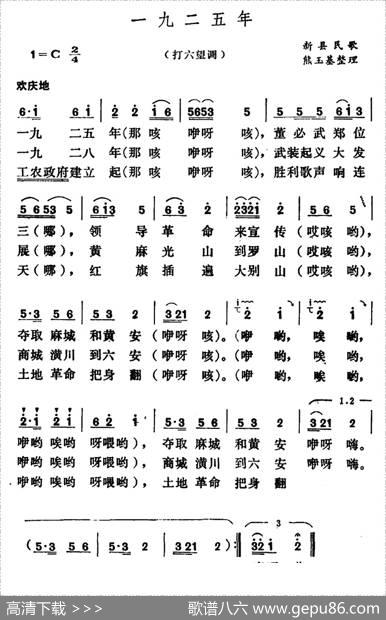 一九二五年
1=C 2/4
（打六望调）
新县民歌
熊玉基整理
欢庆地
6·i 6i 2 2 i6 5653 5 5 5 5 5 6i3
一九 二五 年(那 咳 咿呀 咳)，董 必 武 郑 位
一九 二八 年(那 咳 咿呀 咳)，武装 起义 大 发
工农政府 建立 起(那 咳 咿呀 咳)，胜利 歌声 响 连
5653 5 6i3 5 6 3 2 2321 2 5 5 6
三(哪)，领 导 革 命 来宣 传 (哎咳 哟)，
展(哪)，黄 麻 光 山 到罗 山 (哎咳 哟)，
天(哪)，红 旗 插 遍 大别 山 (哎咳 哟)，
5·3 5 6 5·3 2 321 2 2 i 2 i
夺取 麻城 和黄 安 (咿呀 咳)。(咿 哟， 唉 哟，
商城 潢川 到六 安 (咿呀 咳)。(咿 哟， 唉 哟，
土地 革命 把身 翻 (咿呀 咳)。(咿 哟， 唉 哟，
1.2
2·i 2 i 6 5 6 5·3 5 6 5·3 2 321 2
咿哟 唉哟 呀喂哟)，夺取 麻城 和黄 安 咿呀 嗨。
咿哟 唉哟 呀喂哟)，商城 潢川 到六 安 咿呀 嗨。
咿哟 唉哟 呀喂哟)，土地 革命 把身 翻
3
(5·3 5 6 5·3 2 321 2 ) 32i 2
高清下载 >>>
歌谱八六 www.gepu86.com